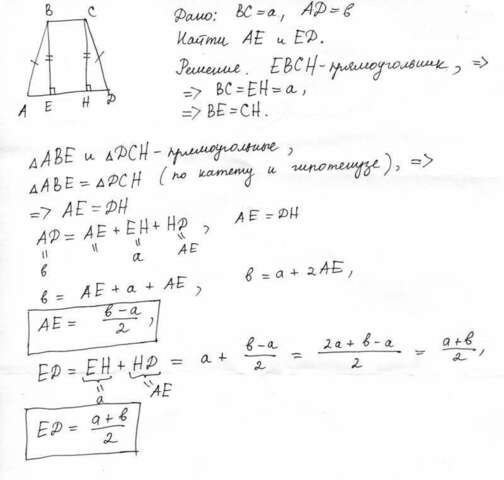 B C
A E H D
Дано: BC = a, AD = в
Найти AE и ED.
Решение. EBCH - прямоугольник, =>
=> BC = EH = a,
=> BE = CH.
△ABE и △DCH - прямоугольные,
△ABE = △DCH (по катету и гипотенузе), =>
=> AE = DH
AD = AE + EH + HD, AE = DH
" " " "
в a AE
в = AE + a + AE, в = a + 2AE,
AE = (в - a)/2,
ED = EH + HD = a + (в - a)/2 = (2a + в - a)/2 = (a + в)/2,
" "
a AE
ED = (a + в)/2